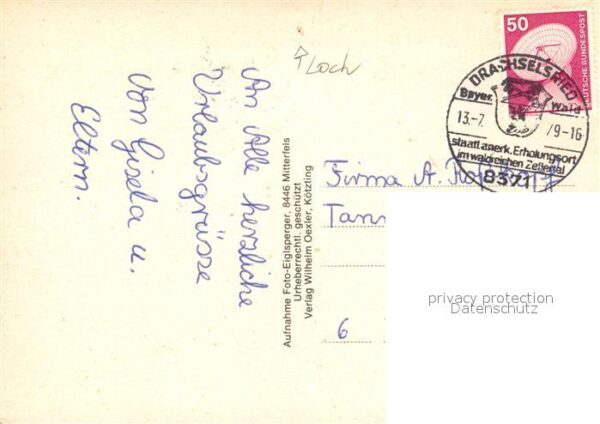 An Alle herzliche
Urlaubsgrüsse
von Gisela u.
Eltern.
Loch
Aufnahme Foto-Eiglsperger, 8446 Mitterfels
Urheberrechtl. geschützt
Verlag Wilhelm Oexler, Kötzting
50
DEUTSCHE BUNDESPOST
DRACHSELSRIED
Bayer. Wald
13.-7. 79-16
staatl. anerk. Erholungsort
im waldreichen Zellertal
8371
Firma A.
Tann
6
privacy protection
Datenschutz